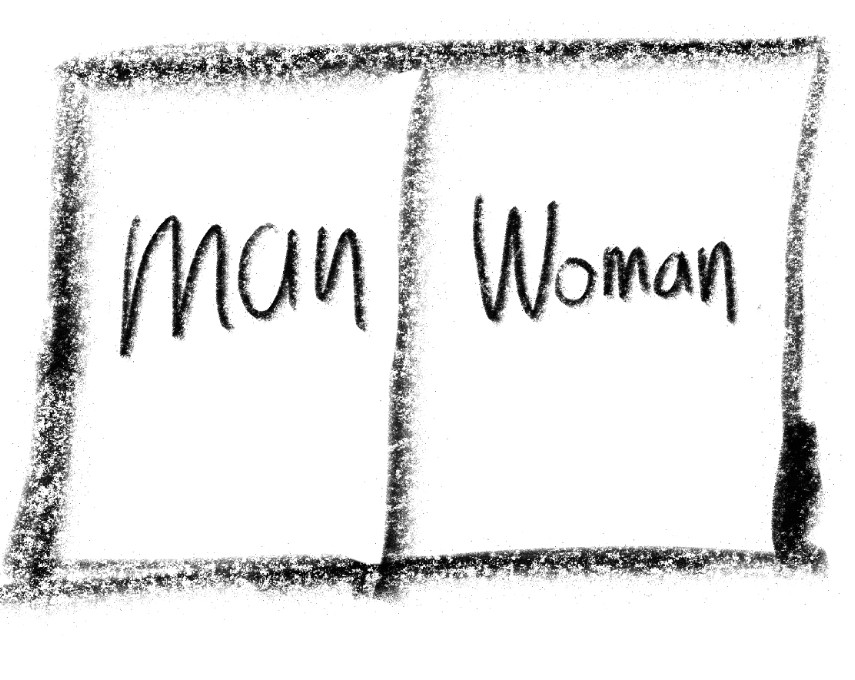 Man
Woman